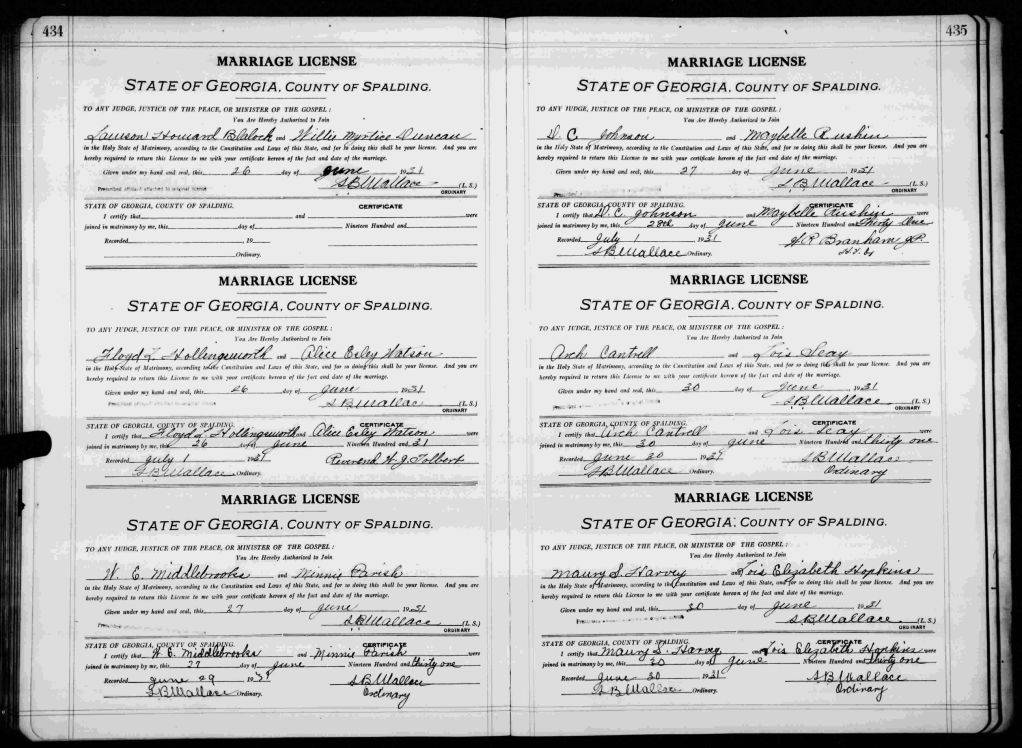 434
MARRIAGE LICENSE
STATE OF GEORGIA, COUNTY OF SPALDING.
TO ANY JUDGE, JUSTICE OF THE PEACE, OR MINISTER OF THE GOSPEL:
You Are Hereby Authorized to Join
Lawson Howard Blalock and Willie Myrtice Duncan
in the Holy State of Matrimony, according to the Constitution and Laws of this State, and for so doing this shall be your license. And you are
hereby required to return this License to me with your certificate hereon of the fact and date of the marriage.
Given under my hand and seal, this 26 day of June 1931
S B Wallace (L. S.)
Prescribed affidavit attached to original license
ORDINARY
STATE OF GEORGIA, COUNTY OF SPALDING. CERTIFICATE
I certify that and were
joined in matrimony by me, this day of Nineteen Hundred and
Recorded 19
Ordinary.
MARRIAGE LICENSE
STATE OF GEORGIA, COUNTY OF SPALDING.
TO ANY JUDGE, JUSTICE OF THE PEACE, OR MINISTER OF THE GOSPEL:
You Are Hereby Authorized to Join
Floyd L Hollingsworth and Alice Exley Watson
in the Holy State of Matrimony, according to the Constitution and Laws of this State, and for so doing this shall be your license. And you are
hereby required to return this License to me with your certificate hereon of the fact and date of the marriage.
Given under my hand and seal, this 26 day of June 1931
S B Wallace (L. S.)
ORDINARY
STATE OF GEORGIA, COUNTY OF SPALDING. CERTIFICATE
I certify that Floyd L Hollingsworth and Alice Exley Watson were
joined in matrimony by me, this 26 day of June Nineteen Hundred and 31
Recorded July 1 1931 Reverend H. J. Tolbert
S B Wallace Ordinary.
MARRIAGE LICENSE
STATE OF GEORGIA, COUNTY OF SPALDING.
TO ANY JUDGE, JUSTICE OF THE PEACE, OR MINISTER OF THE GOSPEL:
You Are Hereby Authorized to Join
W. E. Middlebrooks and Minnie Parish
in the Holy State of Matrimony, according to the Constitution and Laws of this State, and for so doing this shall be your license. And you are
hereby required to return this License to me with your certificate hereon of the fact and date of the marriage.
Given under my hand and seal, this 27 day of June 1931
S B Wallace (L. S.)
ORDINARY
STATE OF GEORGIA, COUNTY OF SPALDING. CERTIFICATE
I certify that W. E. Middlebrooks and Minnie Parish were
joined in matrimony by me, this 27 day of June Nineteen Hundred and thirty one
Recorded June 29 1931 S B Wallace
S B Wallace Ordinary. Ordinary
435
MARRIAGE LICENSE
STATE OF GEORGIA, COUNTY OF SPALDING.
TO ANY JUDGE, JUSTICE OF THE PEACE, OR MINISTER OF THE GOSPEL:
You Are Hereby Authorized to Join
D. C. Johnson and Maybelle Rushin
in the Holy State of Matrimony, according to the Constitution and Laws of this State, and for so doing this shall be your license. And you are
hereby required to return this License to me with your certificate hereon of the fact and date of the marriage.
Given under my hand and seal, this 27 day of June 1931
S B Wallace (L. S.)
ORDINARY
STATE OF GEORGIA, COUNTY OF SPALDING. CERTIFICATE
I certify that D. C. Johnson and Maybelle Rushin were
joined in matrimony by me, this 28th day of June Nineteen Hundred and Thirty One
Recorded July 1 1931 Branham J.P.
S B Wallace Ordinary.
MARRIAGE LICENSE
STATE OF GEORGIA, COUNTY OF SPALDING.
TO ANY JUDGE, JUSTICE OF THE PEACE, OR MINISTER OF THE GOSPEL:
You Are Hereby Authorized to Join
Arch Cantrell and Lois Seay
in the Holy State of Matrimony, according to the Constitution and Laws of this State, and for so doing this shall be your license. And you are
hereby required to return this License to me with your certificate hereon of the fact and date of the marriage.
Given under my hand and seal, this 30 day of June 1931
S B Wallace (L. S.)
ORDINARY
STATE OF GEORGIA, COUNTY OF SPALDING. CERTIFICATE
I certify that Arch Cantrell and Lois Seay were
joined in matrimony by me, this 30 day of June Nineteen Hundred and thirty one
Recorded June 30 1931 S B Wallace
S B Wallace Ordinary. Ordinary
MARRIAGE LICENSE
STATE OF GEORGIA, COUNTY OF SPALDING.
TO ANY JUDGE, JUSTICE OF THE PEACE, OR MINISTER OF THE GOSPEL:
You Are Hereby Authorized to Join
Maury S. Harvey and Lois Elizabeth Hopkins
in the Holy State of Matrimony, according to the Constitution and Laws of this State, and for so doing this shall be your license. And you are
hereby required to return this License to me with your certificate hereon of the fact and date of the marriage.
Given under my hand and seal, this 30 day of June 1931
S B Wallace (L. S.)
ORDINARY
STATE OF GEORGIA, COUNTY OF SPALDING. CERTIFICATE
I certify that Maury S. Harvey and Lois Elizabeth Hopkins were
joined in matrimony by me, this 30 day of June Nineteen Hundred and thirty one
Recorded June 30 1931 S B Wallace
S B Wallace Ordinary. Ordinary